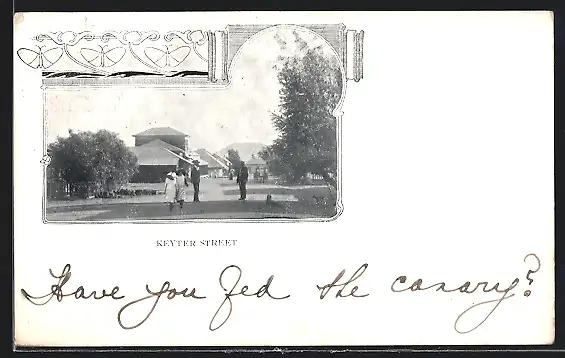 KEYTER STREET
Have you fed the canary?